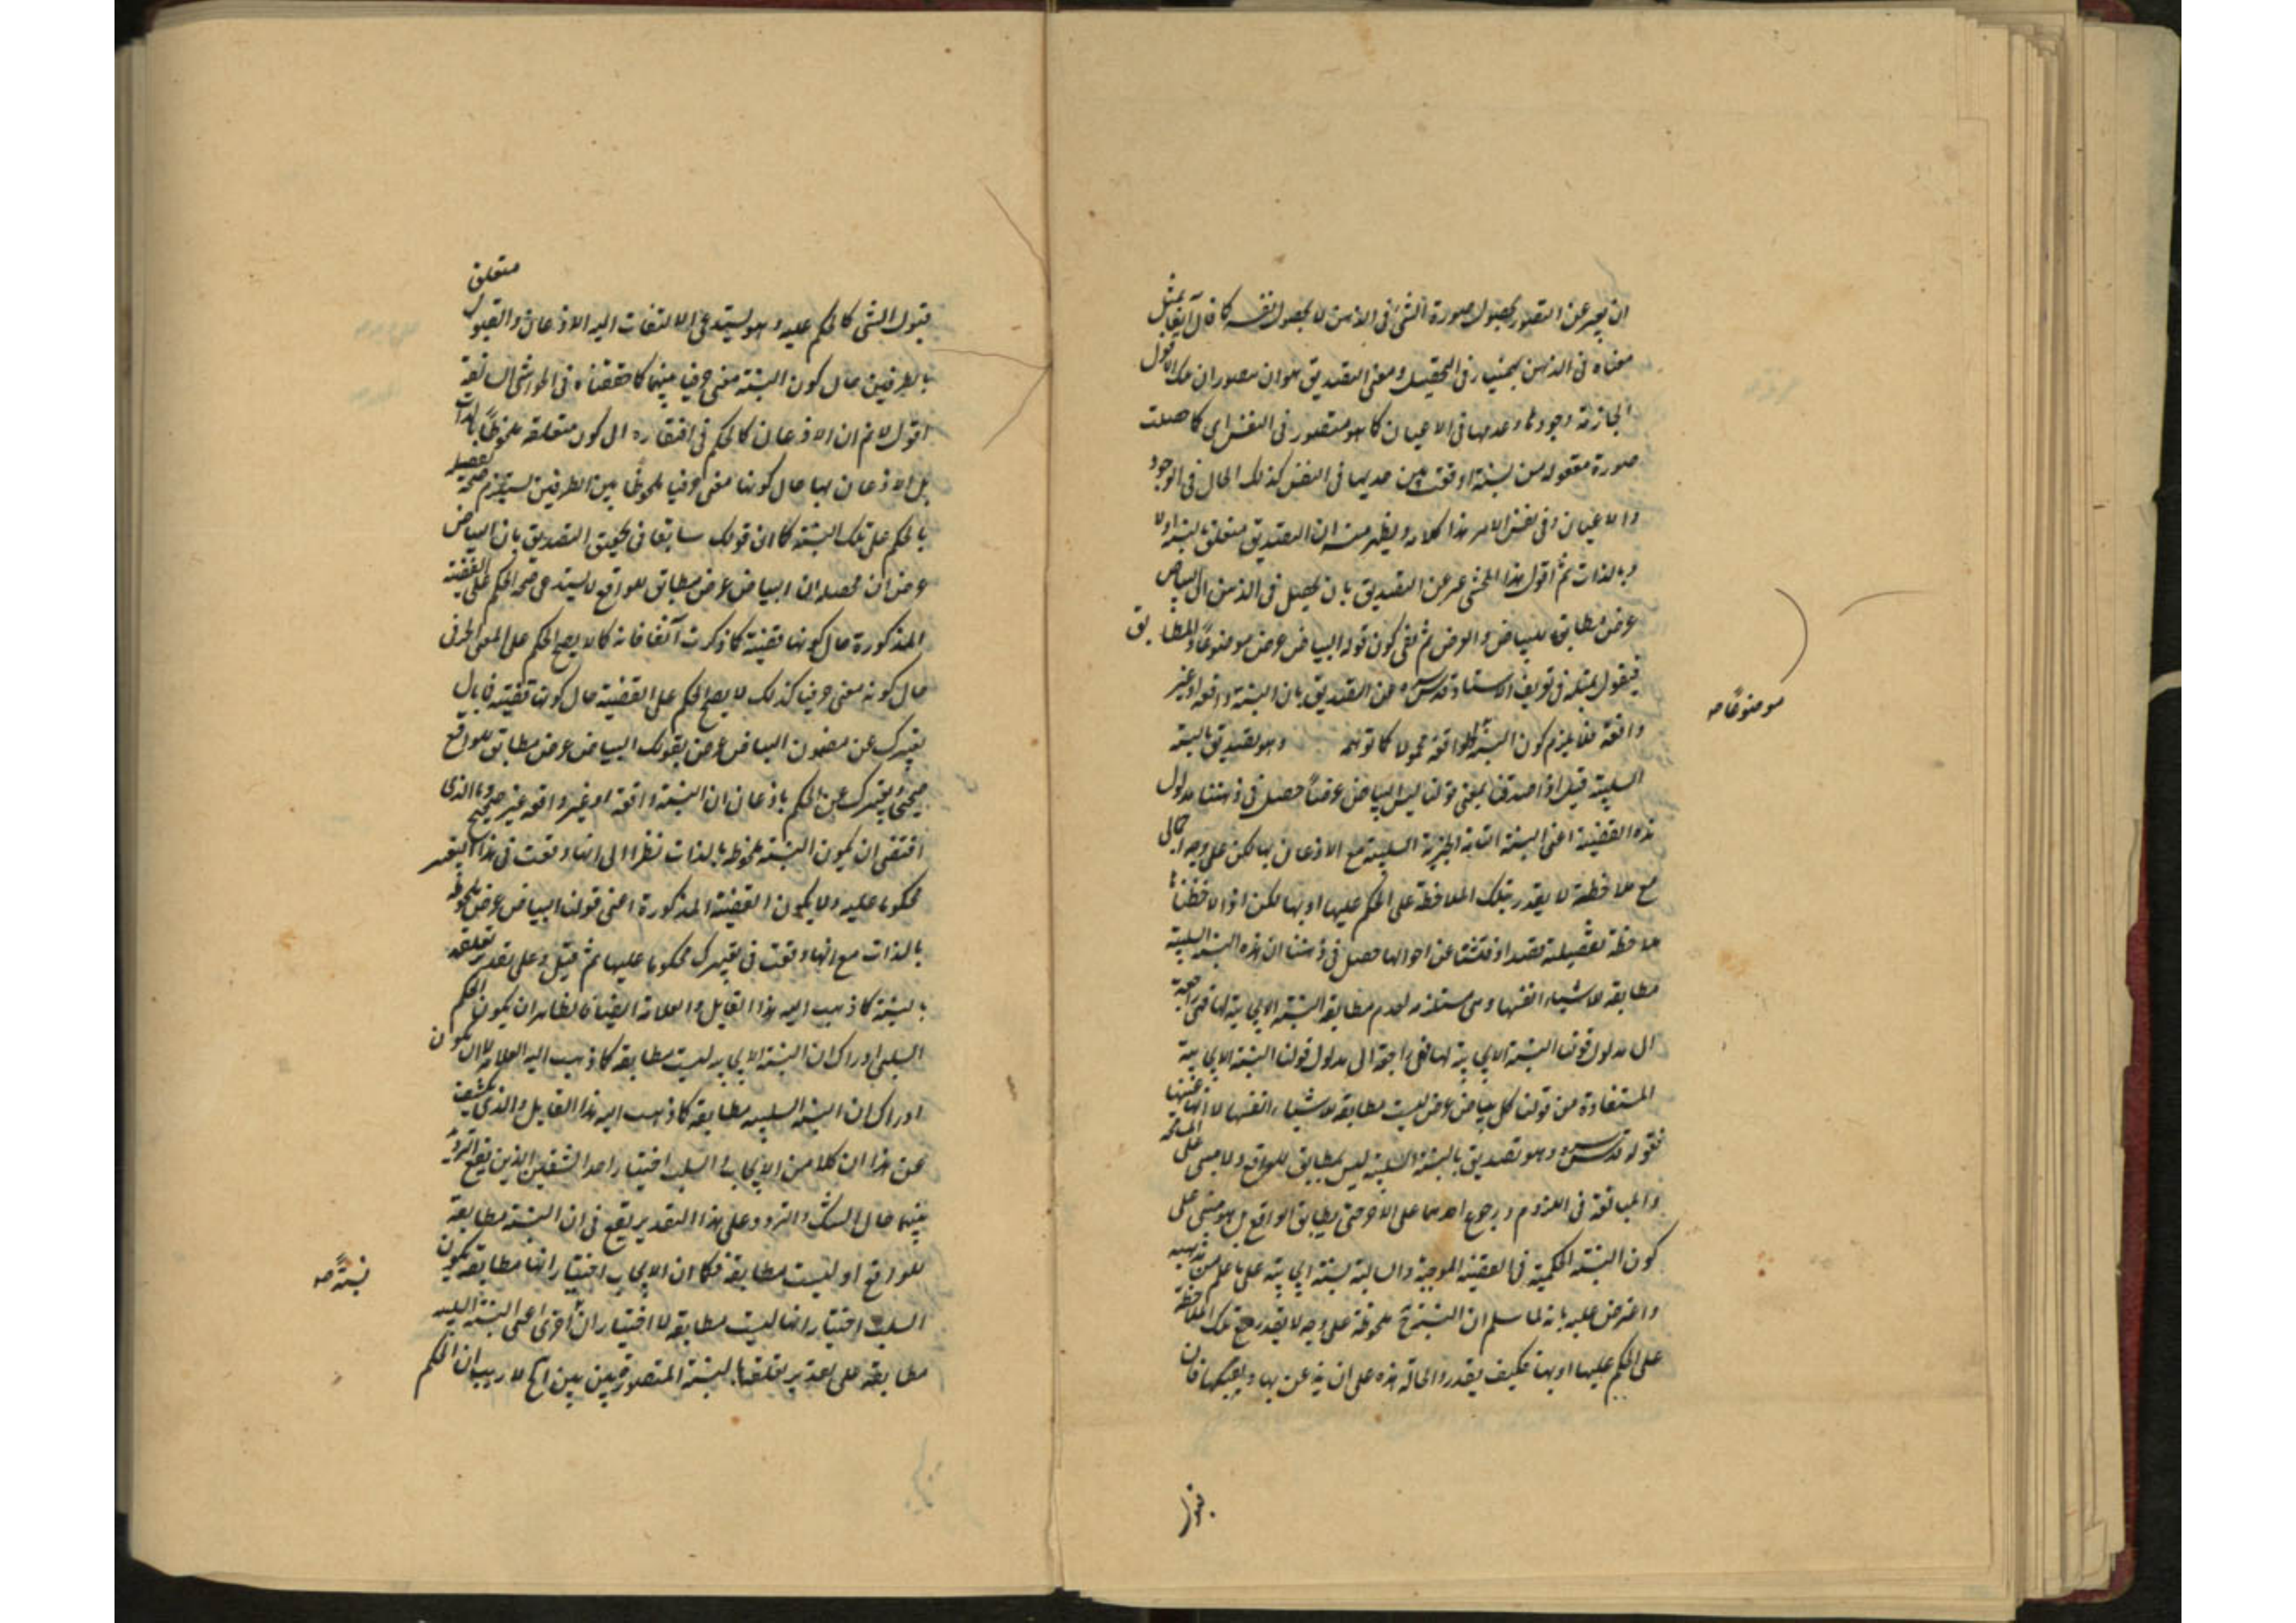 ان يعبر عن التصور بحصول صورة الشئ فى الذهن لا بحصول نفسه كما قال
معناه فى الذهن فى التحقيق ومعنى التصديق هو ان
الجازمة وجودها وعدمها فى الاعيان كما هو متصور فى النفس اى كما حصلت
صورة معقوله من نسبة اوقعت بين حديها فى النفس كذلك الحال فى الوجود
والاعيان وفى نفس الامر هذا كلامه ويظهر منه ان التصديق متعلق بالنسبة اولا
وبالذات ثم اقول هذا المحشى عبر عن التصديق بان يحصل فى الذهن ان البياض
عرض مطابق للبياض والعرض ثم نفى كون قوله البياض عرض موضوعًا والمطابق
فيقول بمثله فى تعريف الاستاد قدس سره عن التصديق بان النسبة واقعة او غير
واقعة فلا يلزم كون النسبة والواقعة محمولا كما توهمه وهو تصديق بالنسبة
السلبية قيل اذا صدقنا بمعنى قولنا ليس البياض عرضًا حصل فى ذهننا مدلول
هذه القضية اعنى النسبة التامة الخبرية السلبية مع الاذعان بها لكن على وجه اجمالى
مع ملاحظة لا يقدر بتلك الملاحظة على الحكم عليها او بها لكن اذا لاحظناها
ملاحظة تفصيلية قصدا وفتشنا عن احوالها حصل فى ذهننا ان هذه النسبة السلبية
مطابقة للاشياء انفسها وهى مستلزمة لعدم مطابقة النسبة الايجابية لها فهى راجعة
الى مدلول قولنا النسبة الايجابية لها فهى راجعة الى مدلول قولنا النسبة الايجابية
المستفادة من قولنا كل بياض عرض ليست مطابقة للاشياء انفسها لا انها عينها
فقوله قدس سره وهو تصديق بالنسبة السلبية ليس بمطابق للواقع ولا مبنى على المسامحة
والمبالغة فى اللزوم ورجوع احدهما على الاخر حتى يطابق الواقع بل هو مبنى على
كون النسبة الحكمية فى القضية الموجبة والسالبة نسبة ايجابية على ما علم من مذهبه
واعترض عليه بانه لما سلم ان النسبة ح ملحوظة على وجه لا يقدر مع تلك الملاحظة
على الحكم عليها او بها فكيف يقدر والحالة هذه على ان يذعن بها ويقبلها فان
موضوعًا صه
قبول
متعلق
قبول الشئ كالحكم عليه وهو يستدعى الالتفات اليه الاذعان والقبول
بالطرفين حال كون النسبة معنى حرفيا بينهما كما حققناه فى الحواشى السابقة
اقول لا نم ان الاذعان كالحكم فى افتقاره الى كون متعلقه ملحوظًا بالذات
بل الاذعان بها حال كونها معنى حرفيا ملحوظا بين الطرفين يستلزم صحة
بالحكم على تلك النسبة كما ان قولك سابقا فى تحقيق التصديق بان البياض
عرض ان محصله ان البياض عرض مطابق للواقع لا يستدعى صحة الحكم على القضية
المذكورة حال كونها قضية كما ذكرت آنفا فانه كما لا يصح الحكم على المعنى الحرفى
حال كونه معنى حرفيا كذلك لا يصح الحكم على القضية حال كونها قضية فما بال
تعبيرك عن مضمون البياض عرض بقولك البياض عرض مطابق للواقع
صحيحا وتعبيرك عن الحكم باذعان ان النسبة واقعة او غير واقعة غير صحيح وما الذى
اقتضى ان يكون النسبة ملحوظة بالذات نظرا الى انها وقعت فى هذا التعبير
محكوما عليه ولا يكون القضية المذكورة اعنى قولنا البياض عرض ملحوظة
بالذات مع انها وقعت فى تعبيرك محكوما عليها ثم قيل وعلى تقدير تعلقه
بالنسبة كما ذهب اليه هذا القايل والعلامة ايضا فالظاهر ان يكون الحكم
السلبى ادراك ان النسبة الايجابية ليست مطابقة كما ذهب اليه العلامة لا ان يكون
ادراك ان النسبة السلبية مطابقة كما ذهب اليه هذا القايل والذى يكشف
عن هذا ان كلا من الايجاب والسلب اختيار احد الشقين الذين يقع التردد
بينهما حال الشك والتردد وعلى هذا التقدير يقع فى ان النسبة مطابقة
للواقع او ليست مطابقة فكما ان الايجاب اختيار انها مطابقة يكون
السلب اختيار انها ليست مطابقة لا اختيار ان اخرى اعنى النسبة السلبية
مطابقة على تقدير تعلقها بالنسبة المتصورة بين بين اتح لا ريب ان الحكم
نسبةً صه